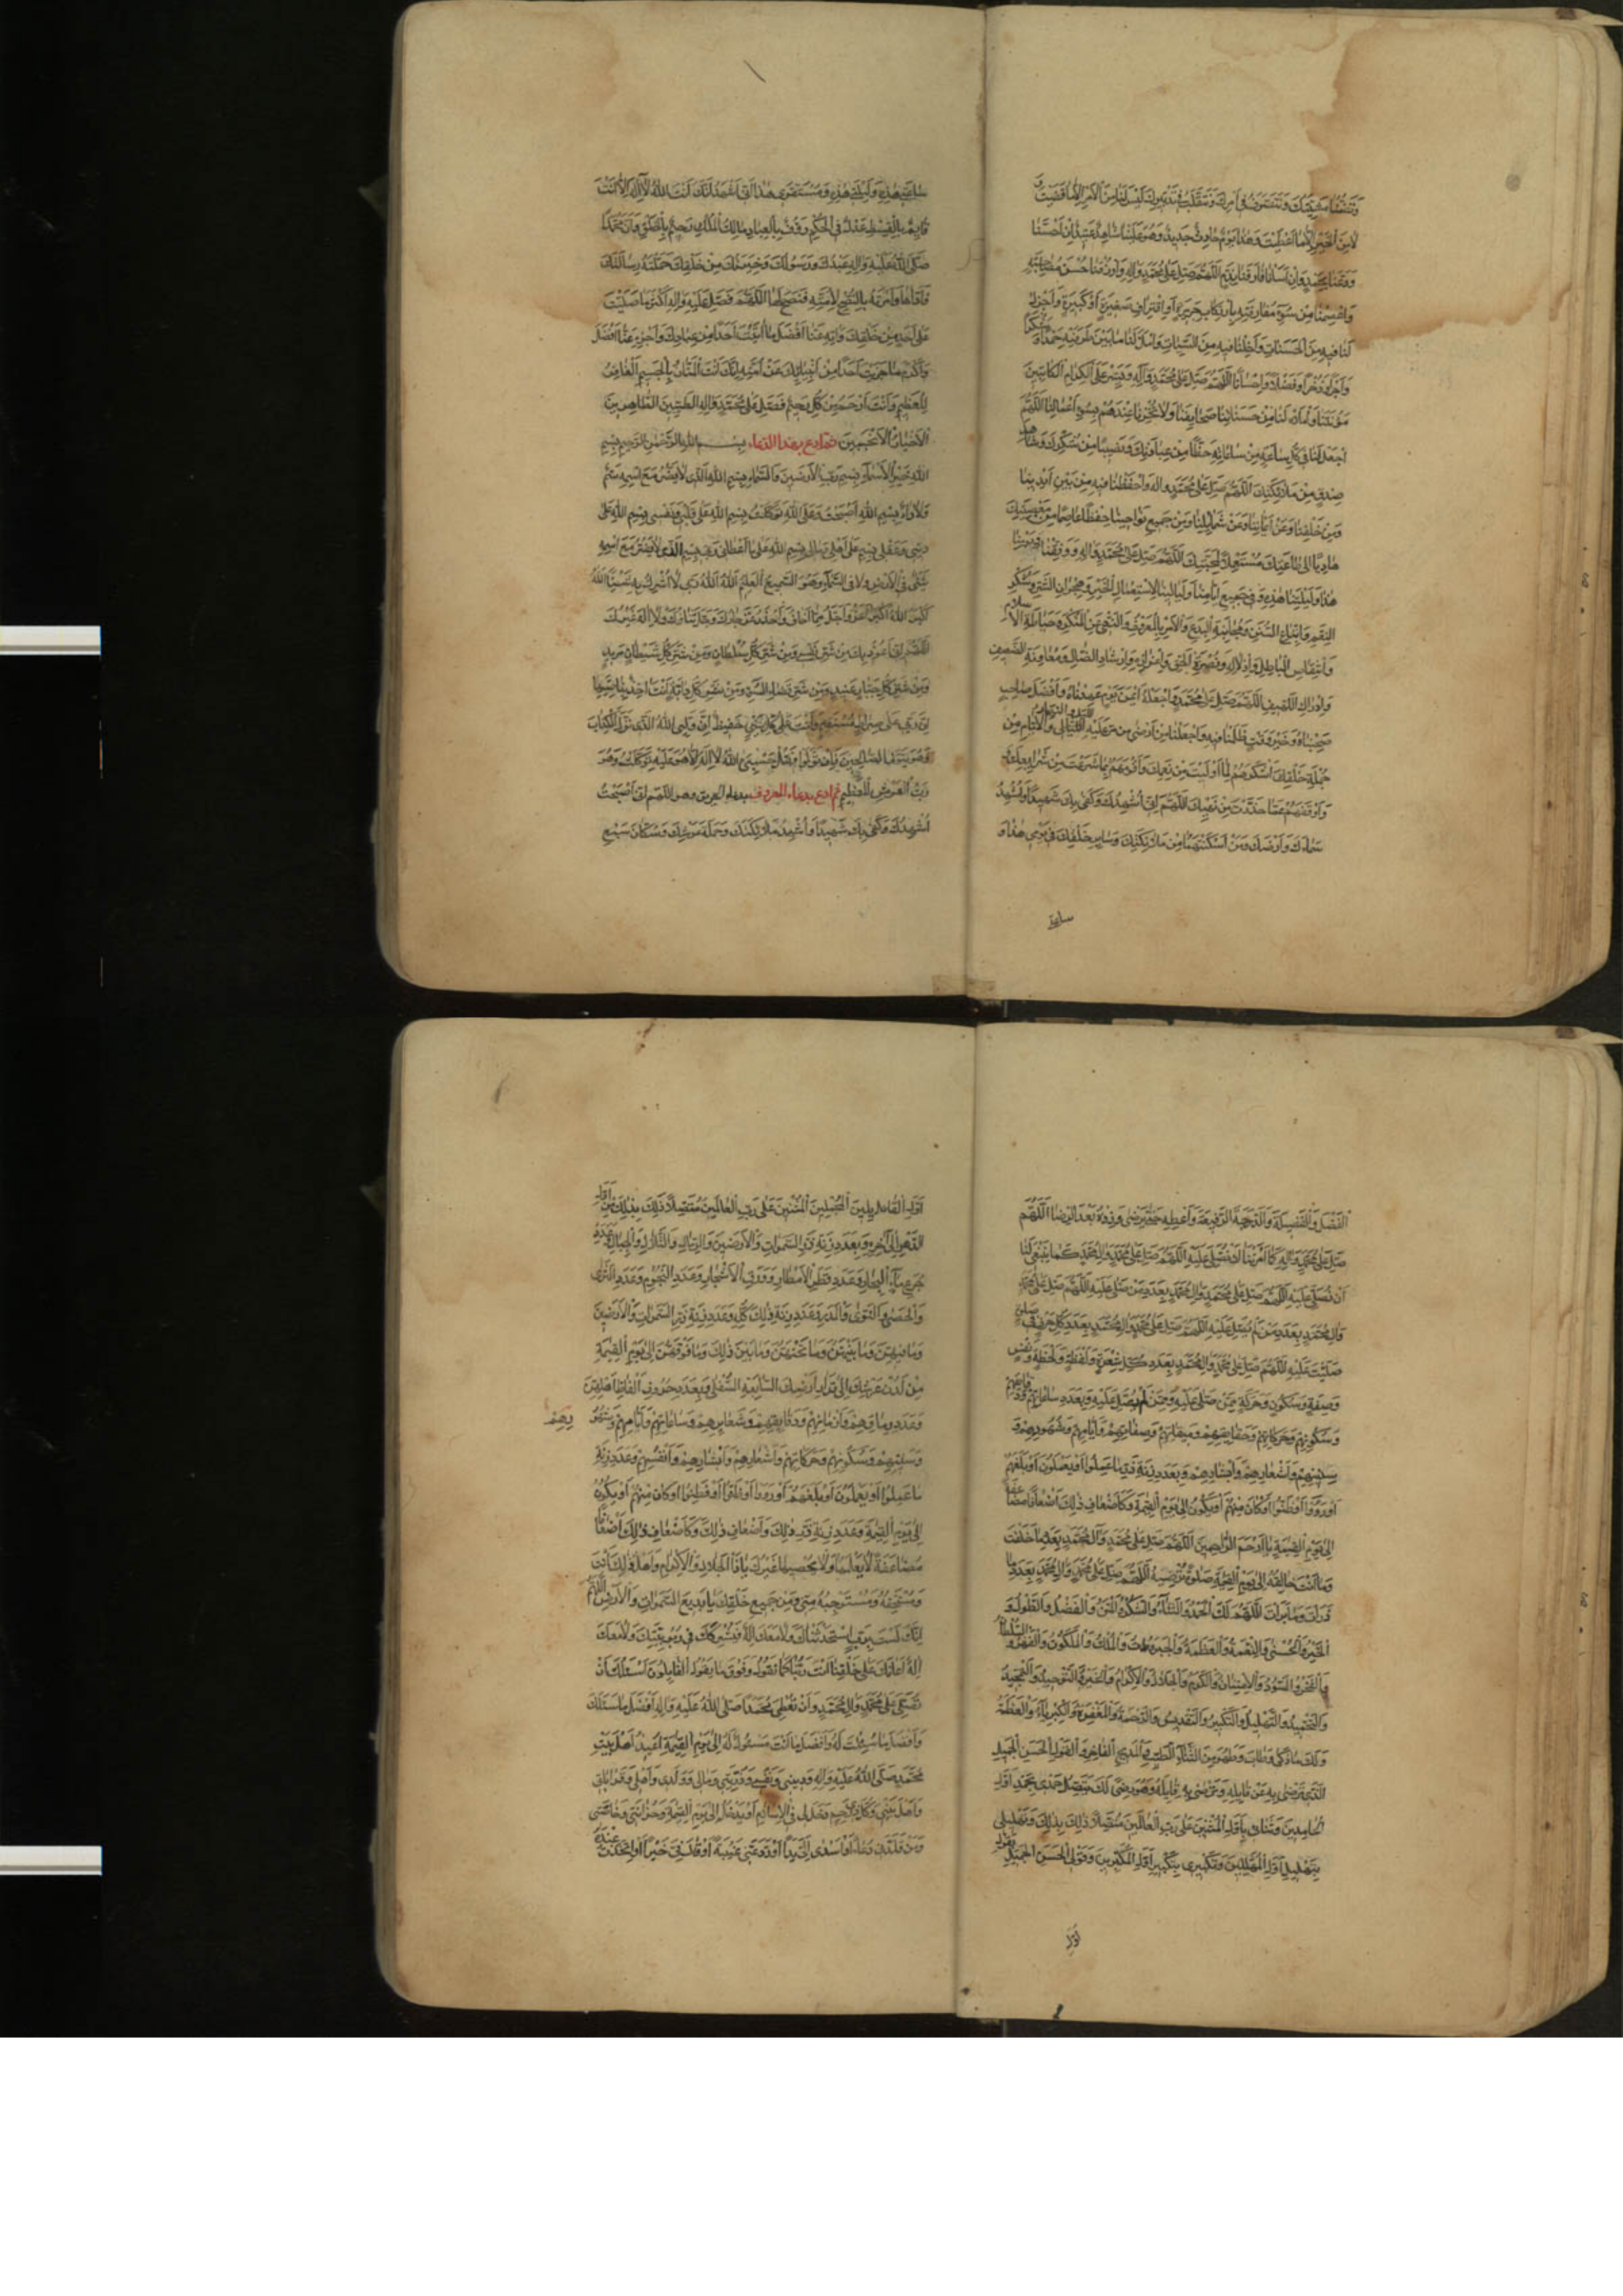 وَتَضُمُّنَا مَشِيَّتُكَ وَنَتَصَرَّفُ فِي أَمْرِكَ وَنَتَقَلَّبُ فِي تَدْبِيرِكَ لَيْسَ لَنَا مِنَ الْأَمْرِ إِلَّا مَا قَضَيْتَ وَ
لَا مِنَ الْخَيْرِ إِلَّا مَا أَعْطَيْتَ وَهٰذَا يَوْمٌ حَادِثٌ جَدِيدٌ وَهُوَ عَلَيْنَا شَاهِدٌ عَتِيدٌ إِنْ أَحْسَنَّا
وَدَّعَنَا بِحَمْدٍ وَإِنْ أَسَأْنَا فَارَقَنَا بِذَمٍّ اللّٰهُمَّ صَلِّ عَلَى مُحَمَّدٍ وَآلِهِ وَارْزُقْنَا حُسْنَ مُصَاحَبَتِهِ
وَاعْصِمْنَا مِنْ سُوءِ مُفَارَقَتِهِ بِارْتِكَابِ جَرِيرَةٍ أَوِ اقْتِرَافِ صَغِيرَةٍ أَوْ كَبِيرَةٍ وَأَجْزِلْ
لَنَا فِيهِ مِنَ الْحَسَنَاتِ وَأَخْلِنَا فِيهِ مِنَ السَّيِّئَاتِ وَامْلَأْ لَنَا مَا بَيْنَ طَرَفَيْهِ حَمْدًا وَشُكْرًا
وَأَجْرًا وَذُخْرًا وَفَضْلًا وَإِحْسَانًا اللّٰهُمَّ صَلِّ عَلَى مُحَمَّدٍ وَآلِهِ وَيَسِّرْ عَلَى الْكِرَامِ الْكَاتِبِينَ
مَؤُنَتَنَا وَامْلَأْ لَنَا مِنْ حَسَنَاتِنَا صَحَائِفَنَا وَلَا تُخْزِنَا عِنْدَهُمْ بِسُوءِ أَعْمَالِنَا اللّٰهُمَّ
اجْعَلْ لَنَا فِي كُلِّ سَاعَةٍ مِنْ سَاعَاتِهِ حَظًّا مِنْ عِبَادَتِكَ وَنَصِيبًا مِنْ شُكْرِكَ وَشَاهِدَ
صِدْقٍ مِنْ مَلَائِكَتِكَ اللّٰهُمَّ صَلِّ عَلَى مُحَمَّدٍ وَآلِهِ وَاحْفَظْنَا فِيهِ مِنْ بَيْنِ أَيْدِينَا
وَمِنْ خَلْفِنَا وَعَنْ أَيْمَانِنَا وَعَنْ شَمَائِلِنَا وَمِنْ جَمِيعِ نَوَاحِينَا حِفْظًا عَاصِمًا مِنْ مَعْصِيَتِكَ
هَادِيًا إِلَى طَاعَتِكَ مُسْتَعْمِلًا لِمَحَبَّتِكَ اللّٰهُمَّ صَلِّ عَلَى مُحَمَّدٍ وَآلِهِ وَوَفِّقْنَا فِي يَوْمِنَا
هٰذَا وَلَيْلَتِنَا هٰذِهِ وَفِي جَمِيعِ أَيَّامِنَا وَلَيَالِينَا لِاسْتِعْمَالِ الْخَيْرِ وَهِجْرَانِ الشَّرِّ وَشُكْرِ
النِّعَمِ وَاتِّبَاعِ السُّنَنِ وَمُجَانَبَةِ الْبِدَعِ وَالْأَمْرِ بِالْمَعْرُوفِ وَالنَّهْيِ عَنِ الْمُنْكَرِ وَحِيَاطَةِ الْإِسْلَامِ
وَانْتِقَاصِ الْبَاطِلِ وَإِذْلَالِهِ وَنُصْرَةِ الْحَقِّ وَإِعْزَازِهِ وَإِرْشَادِ الضَّالِّ وَمُعَاوَنَةِ الضَّعِيفِ
وَإِدْرَاكِ اللَّهِيفِ اللّٰهُمَّ صَلِّ عَلَى مُحَمَّدٍ وَاجْعَلْهُ أَيْمَنَ يَوْمٍ عَهِدْنَاهُ وَأَفْضَلَ صَاحِبٍ
صَحِبْنَاهُ وَخَيْرَ وَقْتٍ ظَلِلْنَا فِيهِ وَاجْعَلْنَا مِنْ أَرْضَى مَنْ مَرَّ عَلَيْهِ اللَّيَالِي وَالْأَيَّامُ مِنْ
جُمْلَةِ خَلْقِكَ أَشْكَرَهُمْ لِمَا أَوْلَيْتَ مِنْ نِعَمِكَ وَأَقْوَمَهُمْ بِمَا شَرَعْتَ مِنْ شَرَايِعِكَ
وَأَوْقَفَهُمْ عَمَّا حَذَّرْتَ مِنْ نَهْيِكَ اللّٰهُمَّ إِنِّي أُشْهِدُكَ وَكَفَى بِكَ شَهِيدًا وَأُشْهِدُ
سَمَاءَكَ وَأَرْضَكَ وَمَنْ أَسْكَنْتَهُمَا مِنْ مَلَائِكَتِكَ وَسَايِرِ خَلْقِكَ فِي يَوْمِي هٰذَا وَ
ساعتي
سَاعَتِي هٰذِهِ وَلَيْلَتِي هٰذِهِ وَمُسْتَقَرِّي هٰذَا أَنِّي أَشْهَدُ أَنَّكَ أَنْتَ اللّٰهُ لَا إِلٰهَ إِلَّا أَنْتَ
قَائِمٌ بِالْقِسْطِ عَدْلٌ فِي الْحُكْمِ رَؤُفٌ بِالْعِبَادِ مَالِكُ الْمُلْكِ رَحِيمٌ بِالْخَلْقِ وَأَنَّ مُحَمَّدًا
صَلَّى اللّٰهُ عَلَيْهِ وَآلِهِ عَبْدُكَ وَرَسُولُكَ وَخِيَرَتُكَ مِنْ خَلْقِكَ حَمَّلْتَهُ رِسَالَتَكَ
فَأَدَّاهَا وَأَمَرْتَهُ بِالنُّصْحِ لِأُمَّتِهِ فَنَصَحَ لَهَا اللّٰهُمَّ فَصَلِّ عَلَيْهِ وَآلِهِ أَكْثَرَ مَا صَلَّيْتَ
عَلَى أَحَدٍ مِنْ خَلْقِكَ وَآتِهِ عَنَّا أَفْضَلَ مَا آتَيْتَ أَحَدًا مِنْ عِبَادِكَ وَاجْزِهِ عَنَّا أَفْضَلَ
وَأَكْرَمَ مَا جَزَيْتَ أَحَدًا مِنْ أَنْبِيَائِكَ عَنْ أُمَّتِهِ إِنَّكَ أَنْتَ الْمَنَّانُ بِالْجَسِيمِ الْغَافِرُ
لِلْعَظِيمِ وَأَنْتَ أَرْحَمُ مِنْ كُلِّ رَحِيمٍ فَصَلِّ عَلَى مُحَمَّدٍ وَآلِهِ الطَّيِّبِينَ الطَّاهِرِينَ
الْأَخْيَارِ الْأَنْجَبِينَ ثم ادع بهذا الدعاء بِسْمِ اللّٰهِ الرَّحْمٰنِ الرَّحِيمِ بِسْمِ
اللّٰهِ خَيْرِ الْأَسْمَاءِ بِسْمِ رَبِّ الْأَرْضِينَ وَالسَّمَاءِ بِسْمِ اللّٰهِ الَّذِي لَا يَضُرُّ مَعَ اسْمِهِ سَمٌّ
وَلَا دَاءٌ بِسْمِ اللّٰهِ أَصْبَحْتُ وَعَلَى اللّٰهِ تَوَكَّلْتُ بِسْمِ اللّٰهِ عَلَى قَلْبِي وَنَفْسِي بِسْمِ اللّٰهِ عَلَى
دِينِي وَعَقْلِي بِسْمِ عَلَى أَهْلِي وَمَالِي بِسْمِ اللّٰهِ عَلَى مَا أَعْطَانِي رَبِّي بِسْمِ الَّذِي لَا يَضُرُّ مَعَ اسْمِهِ
شَيْءٌ فِي الْأَرْضِ وَلَا فِي السَّمَاءِ وَهُوَ السَّمِيعُ الْعَلِيمُ اللّٰهُ اللّٰهُ رَبِّي لَا أُشْرِكُ بِهِ شَيْئًا اللّٰهُ
أَكْبَرُ اللّٰهُ أَكْبَرُ أَعَزُّ وَأَجَلُّ مِمَّا أَخَافُ وَأَحْذَرُ عَزَّ جَارُكَ وَجَلَّ ثَنَاؤُكَ وَلَا إِلٰهَ غَيْرُكَ
اللّٰهُمَّ إِنِّي أَعُوذُ بِكَ مِنْ شَرِّ نَفْسِي وَمِنْ شَرِّ كُلِّ سُلْطَانٍ وَمِنْ شَرِّ كُلِّ شَيْطَانٍ مَرِيدٍ
وَمِنْ شَرِّ كُلِّ جَبَّارٍ عَنِيدٍ وَمِنْ شَرِّ قَضَاءِ السُّوءِ وَمِنْ شَرِّ كُلِّ دَابَّةٍ أَنْتَ آخِذٌ بِنَاصِيَتِهَا
إِنَّ رَبِّي عَلَى صِرَاطٍ مُسْتَقِيمٍ وَأَنْتَ عَلَى كُلِّ شَيْءٍ حَفِيظٌ إِنَّ وَلِيِّيَ اللّٰهُ الَّذِي نَزَّلَ الْكِتَابَ
وَهُوَ يَتَوَلَّى الصَّالِحِينَ فَإِنْ تَوَلَّوْا فَقُلْ حَسْبِيَ اللّٰهُ لَا إِلٰهَ إِلَّا هُوَ عَلَيْهِ تَوَكَّلْتُ وَهُوَ
رَبُّ الْعَرْشِ الْعَظِيمِ ثم ادع بدعاء المعروف بدعاء الحريق وهو اللّٰهُمَّ إِنِّي أَصْبَحْتُ
أُشْهِدُكَ وَكَفَى بِكَ شَهِيدًا وَأُشْهِدُ مَلَائِكَتَكَ وَحَمَلَةَ عَرْشِكَ وَسُكَّانَ سَبْعِ
الْفَضْلَ وَالْفَضِيلَةَ وَالدَّرَجَةَ الرَّفِيعَةَ وَأَعْطِهِ حَتَّى يَرْضَى وَزِدْهُ بَعْدَ الرِّضَا اللّٰهُمَّ
صَلِّ عَلَى مُحَمَّدٍ وَآلِهِ كَمَا أَمَرْتَنَا أَنْ نُصَلِّيَ عَلَيْهِ اللّٰهُمَّ صَلِّ عَلَى مُحَمَّدٍ وَآلِ مُحَمَّدٍ كَمَا يَنْبَغِي لَنَا
أَنْ نُصَلِّيَ عَلَيْهِ اللّٰهُمَّ صَلِّ عَلَى مُحَمَّدٍ وَآلِ مُحَمَّدٍ بِعَدَدِ مَنْ صَلَّى عَلَيْهِ اللّٰهُمَّ صَلِّ عَلَى مُحَمَّدٍ
وَآلِ مُحَمَّدٍ بِعَدَدِ مَنْ لَمْ يُصَلِّ عَلَيْهِ اللّٰهُمَّ صَلِّ عَلَى مُحَمَّدٍ وَآلِ مُحَمَّدٍ بِعَدَدِ كُلِّ حَرْفٍ فِي صَلٰوةٍ
صَلَّيْتَ عَلَيْهِ اللّٰهُمَّ صَلِّ عَلَى مُحَمَّدٍ وَآلِ مُحَمَّدٍ بِعَدَدِ كُلِّ شَعْرَةٍ وَلَفْظَةٍ وَلَحْظَةٍ وَنَفَسٍ
وَصِفَةٍ وَسُكُونٍ وَحَرَكَةٍ مِمَّنْ صَلَّى عَلَيْهِ وَمِمَّنْ لَمْ يُصَلِّ عَلَيْهِ وَبِعَدَدِ سَاعَاتِهِمْ وَدَقَائِقِهِمْ
وَسُكُونِهِمْ وَحَرَكَاتِهِمْ وَحَقَايِقِهِمْ وَمِيقَاتِهِمْ وَصِفَاتِهِمْ وَأَيَّامِهِمْ وَشُهُورِهِمْ وَ
سِنِينِهِمْ وَأَشْعَارِهِمْ وَأَبْشَارِهِمْ وَبِعَدَدِ زِنَةِ ذَرِّ مَا عَمِلُوا أَوْ يَعْمَلُونَ أَوْ بَلَغَهُمْ
أَوْ رَأَوْا أَوْ ظَنُّوا أَوْ كَانَ مِنْهُمْ أَوْ يَكُونُ إِلَى يَوْمِ الْقِيٰمَةِ وَكَأَضْعَافِ ذٰلِكَ أَضْعَافًا مُضَاعَفَةً
إِلَى يَوْمِ الْقِيٰمَةِ يَا أَرْحَمَ الرَّاحِمِينَ اللّٰهُمَّ صَلِّ عَلَى مُحَمَّدٍ وَآلِ مُحَمَّدٍ بِعَدَدِ مَا خَلَقْتَ
وَمَا أَنْتَ خَالِقُهُ إِلَى يَوْمِ الْقِيٰمَةِ صَلٰوةً تُرْضِيهِ اللّٰهُمَّ صَلِّ عَلَى مُحَمَّدٍ وَآلِ مُحَمَّدٍ بِعَدَدِ مَا
ذَرَأْتَ وَمَا بَرَأْتَ اللّٰهُمَّ لَكَ الْحَمْدُ وَالثَّنَاءُ وَالشُّكْرُ وَالْمَنُّ وَالْفَضْلُ وَالطَّوْلُ وَ
الْخَيْرُ وَالْحُسْنَى وَالنِّعْمَةُ وَالْعَظَمَةُ وَالْجَبَرُوتُ وَالْمُلْكُ وَالْمَلَكُوتُ وَالْقَهْرُ وَالسُّلْطَانُ
وَالْفَخْرُ وَالسُّؤْدَدُ وَالِامْتِنَانُ وَالْكَرَمُ وَالْجَلَالُ وَالْإِكْرَامُ وَالْخَيْرُ وَالتَّوْحِيدُ وَالتَّمْجِيدُ
وَالتَّحْمِيدُ وَالتَّهْلِيلُ وَالتَّكْبِيرُ وَالتَّقْدِيسُ وَالرَّحْمَةُ وَالْمَغْفِرَةُ وَالْكِبْرِيَاءُ وَالْعَظَمَةُ
وَلَكَ مَا زَكَى وَطَابَ وَطَهُرَ مِنَ الثَّنَاءِ الطَّيِّبِ وَالْمَدِيحِ الْفَاخِرِ وَالْقَوْلِ الْحَسَنِ الْجَمِيلِ
الَّذِي تَرْضَى بِهِ عَنْ قَايِلِهِ وَتُرْضِي بِهِ قَايِلَهُ وَهُوَ رِضًى لَكَ يَتَّصِلُ حَمْدِي بِحَمْدِ أَوَّلِ
الْحَامِدِينَ وَثَنَائِي بِأَوَّلِ الْمُثْنِينَ عَلَى رَبِّ الْعَالَمِينَ مُتَّصِلًا ذٰلِكَ بِذٰلِكَ وَتَهْلِيلِي
بِتَهْلِيلِ أَوَّلِ الْمُهَلِّلِينَ وَتَكْبِيرِي بِتَكْبِيرِ أَوَّلِ الْمُكَبِّرِينَ وَقَوْلِيَ الْحَسَنُ الْجَمِيلُ بِقَوْلِ
أول
أَوَّلِ الْقَائِلِينَ الْمُجْمِلِينَ الْمُثْنِينَ عَلَى رَبِّ الْعَالَمِينَ مُتَّصِلًا ذٰلِكَ بِذٰلِكَ مِنْ أَوَّلِ
الدَّهْرِ إِلَى آخِرِهِ وَبِعَدَدِ زِنَةِ ذَرِّ السَّمٰوَاتِ وَالْأَرَضِينَ وَالرِّمَالِ وَالتِّلَالِ وَالْجِبَالِ وَعَدَدِ
جُرَعِ مَاءِ الْبِحَارِ وَعَدَدِ قَطْرِ الْأَمْطَارِ وَوَرَقِ الْأَشْجَارِ وَعَدَدِ النُّجُومِ وَعَدَدِ الثَّرَى
وَالْحَصَى وَالنَّوَى وَالْمَدَرِ وَعَدَدِ زِنَةِ ذٰلِكَ كُلِّهِ وَعَدَدِ زِنَةِ ذَرِّ السَّمٰوَاتِ وَالْأَرَضِينَ
وَمَا فِيهِنَّ وَمَا بَيْنَهُنَّ وَمَا تَحْتَهُنَّ وَمَا بَيْنَ ذٰلِكَ وَمَا فَوْقَهُنَّ إِلَى يَوْمِ الْقِيٰمَةِ
مِنْ لَدُنْ عَرْشِكَ إِلَى قَرَارِ أَرْضِكَ السَّابِعَةِ السُّفْلَى وَبِعَدَدِ حُرُوفِ أَلْفَاظِ أَهْلِهِنَّ
وَعَدَدِ رمَاقِهِمْ وَأَزْمَانِهِمْ وَدَقَائِقِهِمْ وَشَعَايِرِهِمْ وَسَاعَاتِهِمْ وَأَيَّامِهِمْ وَشُهُورِهِمْ
وَسِنِيهِمْ وَسُكُونِهِمْ وَحَرَكَاتِهِمْ وَأَشْعَارِهِمْ وَأَبْشَارِهِمْ وَأَنْفُسِهِمْ وَعَدَدِ زِنَةِ
مَا عَمِلُوا أَوْ يَعْمَلُونَ أَوْ بَلَغَهُمْ أَوْ رَأَوْا أَوْ ظَنُّوا أَوْ فَطِنُوا أَوْ كَانَ مِنْهُمْ أَوْ يَكُونُ
إِلَى يَوْمِ الْقِيٰمَةِ وَعَدَدِ زِنَةِ ذَرِّ ذٰلِكَ وَأَضْعَافِ ذٰلِكَ وَكَأَضْعَافِ ذٰلِكَ أَضْعَافًا
مُضَاعَفَةً لَا يَعْلَمُهَا وَلَا يُحْصِيهَا غَيْرُكَ يَا ذَا الْجَلَالِ وَالْإِكْرَامِ وَأَهْلُ ذٰلِكَ أَنْتَ
وَمُسْتَحِقُّهُ وَمُسْتَوْجِبُهُ مِنِّي وَمِنْ جَمِيعِ خَلْقِكَ يَا بَدِيعَ السَّمٰوَاتِ وَالْأَرْضِ اللّٰهُمَّ
إِنَّكَ لَسْتَ بِرَبٍّ اسْتَحْدَثْنَاكَ وَلَا مَعَكَ إِلٰهٌ فَيَشْرَكَكَ فِي رُبُوبِيَّتِكَ وَلَا مَعَكَ
إِلٰهٌ أَعَانَكَ عَلَى خَلْقِنَا أَنْتَ رَبُّنَا كَمَا تَقُولُ وَفَوْقَ مَا يَقُولُ الْقَايِلُونَ أَسْئَلُكَ أَنْ
تُصَلِّيَ عَلَى مُحَمَّدٍ وَآلِ مُحَمَّدٍ وَأَنْ تُعْطِيَ مُحَمَّدًا صَلَّى اللّٰهُ عَلَيْهِ وَآلِهِ أَفْضَلَ مَا سَئَلَكَ
وَأَفْضَلَ مَا سُئِلْتَ لَهُ وَأَفْضَلَ مَا أَنْتَ مَسْئُولٌ لَهُ إِلَى يَوْمِ الْقِيٰمَةِ أُعِيذُ أَهْلَ بَيْتِ
مُحَمَّدٍ صَلَّى اللّٰهُ عَلَيْهِ وَآلِهِ وَدِينِي وَنَفْسِي وَذُرِّيَّتِي وَمَالِي وَوَلَدِي وَأَهْلِي وَقَرَابَاتِي
وَأَهْلَ بَيْتِي وَكُلَّ ذِي رَحِمٍ دَخَلَ لِي فِي الْإِسْلَامِ أَوْ يَدْخُلُ إِلَى يَوْمِ الْقِيٰمَةِ وَحُزَانَتِي وَخَاصَّتِي
وَمَنْ قَلَّدَنِي دُعَاءً أَوْ أَسْدَى إِلَيَّ يَدًا أَوْ رَدَّ عَنِّي غِيبَةً أَوْ قَالَ فِيَّ خَيْرًا أَوِ اتَّخَذْتُ عِنْدَهُ